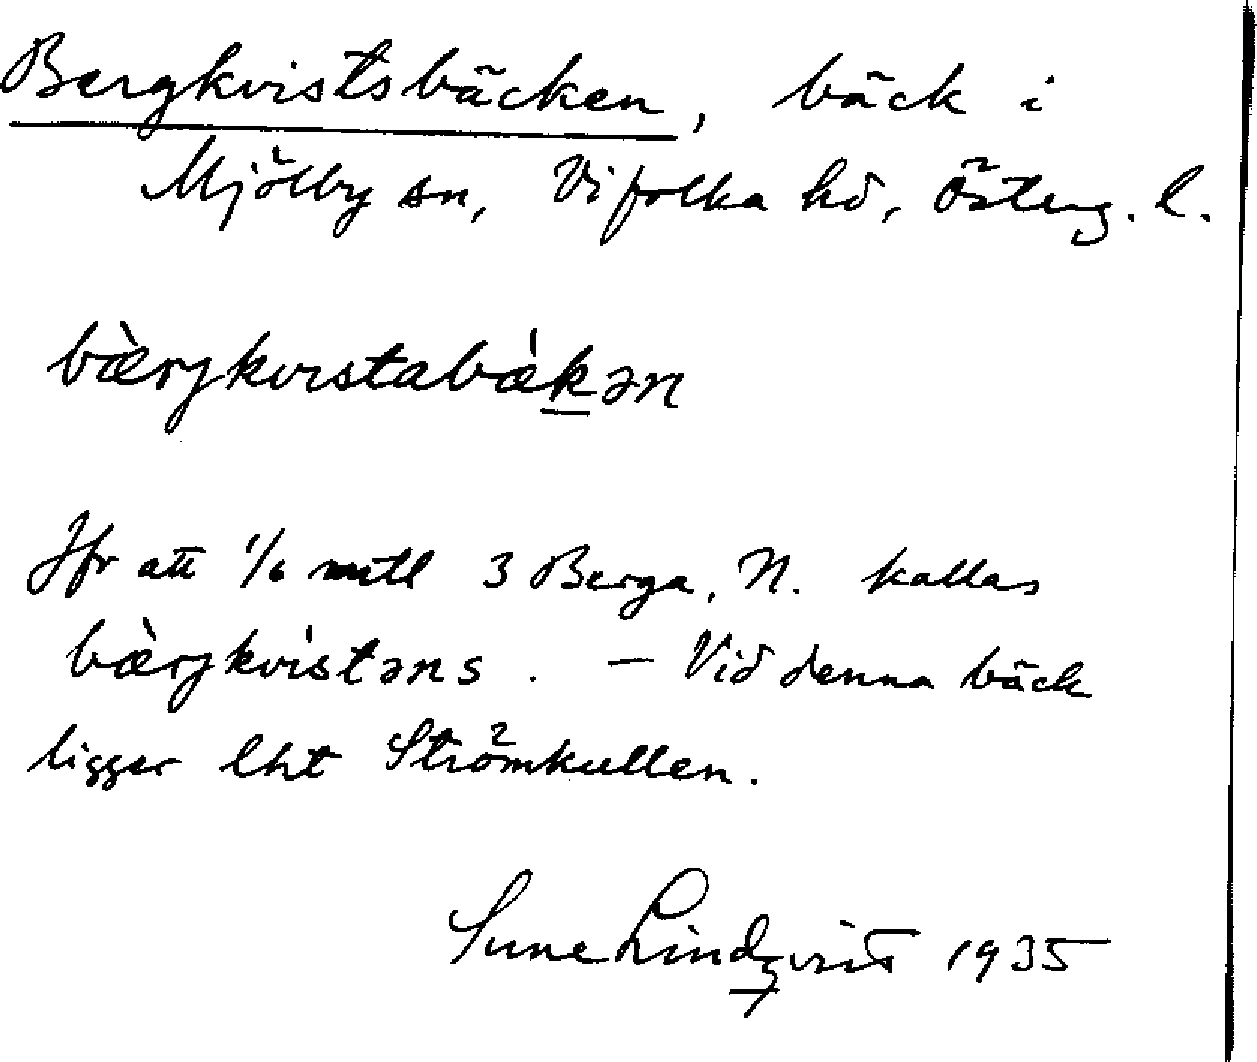 Bergkvistsbäcken, bäck i
Mjölby sn, Vifolka hd, Österg. l.
bæ̀rjkvistabæ̀kən
Jfr att 1/6 mtl 3 Berga, N. kallas
bæ̀rjkvistəns. — Vid denna bäck
ligger lht Strömkullen.
Sune Lindqvist 1935